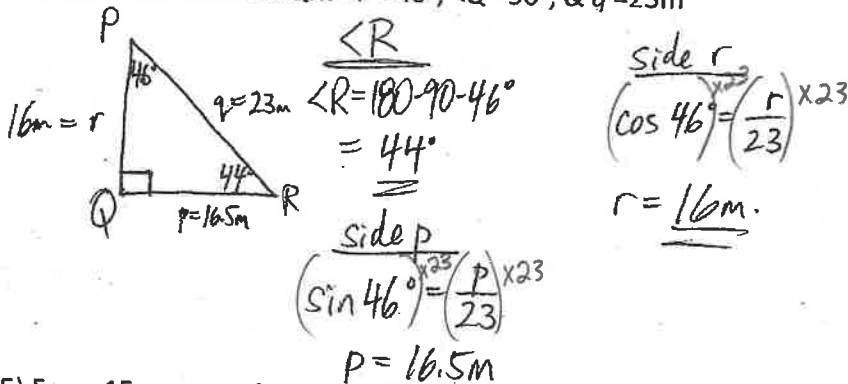 q = 23m
P
46°
q = 23m
16m = r
44°
Q
p = 16.5m
R
<R
<R = 180-90-46°
= 44°
side p
(sin 46°)×23 = (p/23)×23
p = 16.5m
side r
(cos 46°)×23 = (r/23)×23
r = 16m.